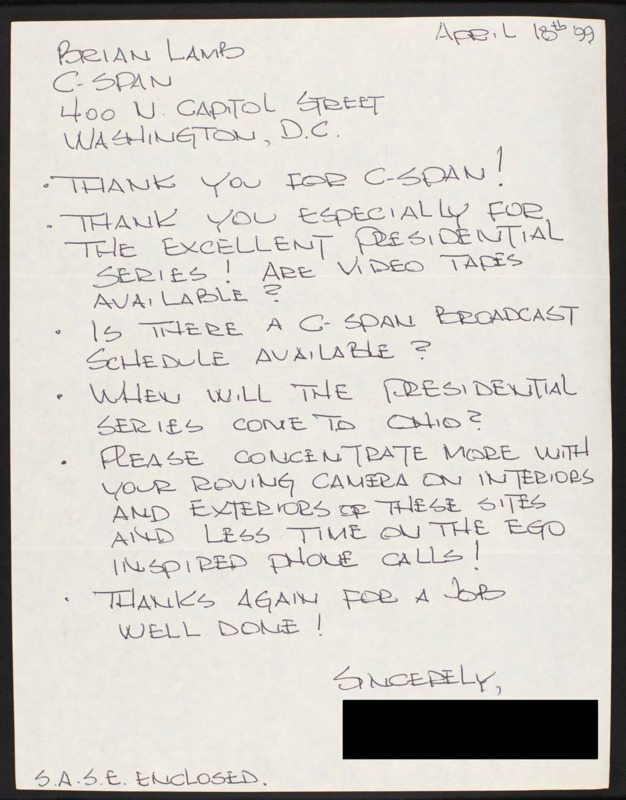 April 18th 99
Brian Lamb
C-SPAN
400 N. Capitol Street
Washington, D.C.
· Thank you for C-SPAN!
· Thank you especially for
the excellent Presidential
Series! Are video tapes
available?
· Is there a C-SPAN broadcast
schedule available?
· When will the Presidential
Series come to Ohio?
· Please concentrate more with
your roving camera on interiors
and exteriors of these sites
and less time on the ego
inspired phone calls!
· Thanks again for a job
well done!
Sincerely,
S.A.S.E. enclosed.